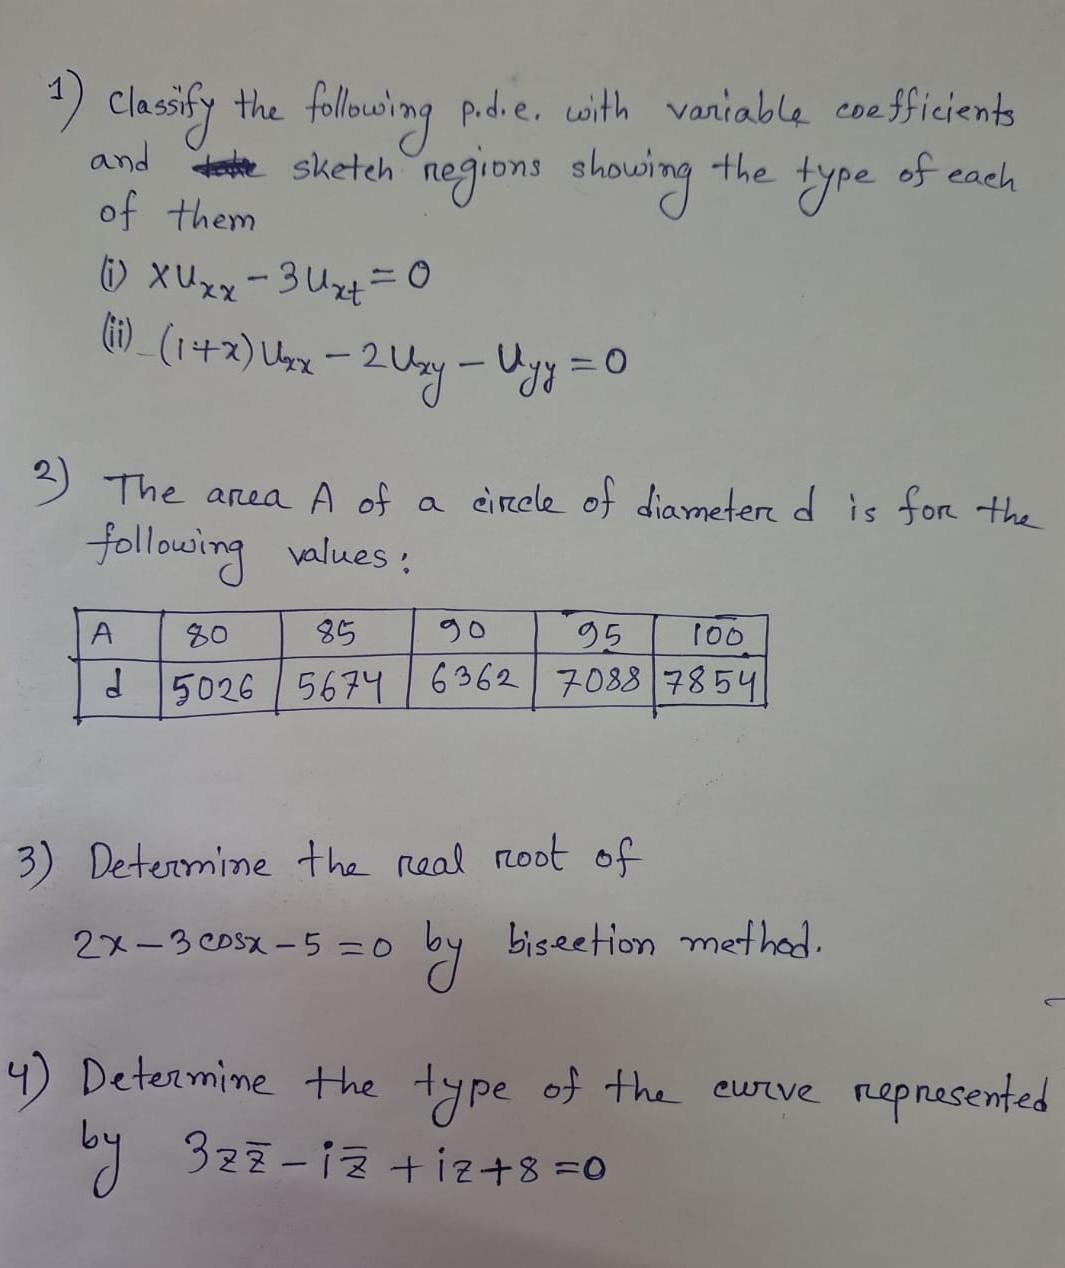 1) Classify the following p.d.e. with variable coefficients
and sketch regions showing the type of each
of them
(i) xu_xx - 3u_xt = 0
(ii) (1+x)u_xx - 2u_xy - u_yy = 0
2) The area A of a circle of diameter d is for the
following values:
A 80 85 90 95 100
d 5026 5674 6362 7088 7854
3) Determine the real root of
2x - 3cosx - 5 = 0 by bisection method.
4) Determine the type of the curve represented
by 3zz̄ - iz̄ + iz + 8 = 0